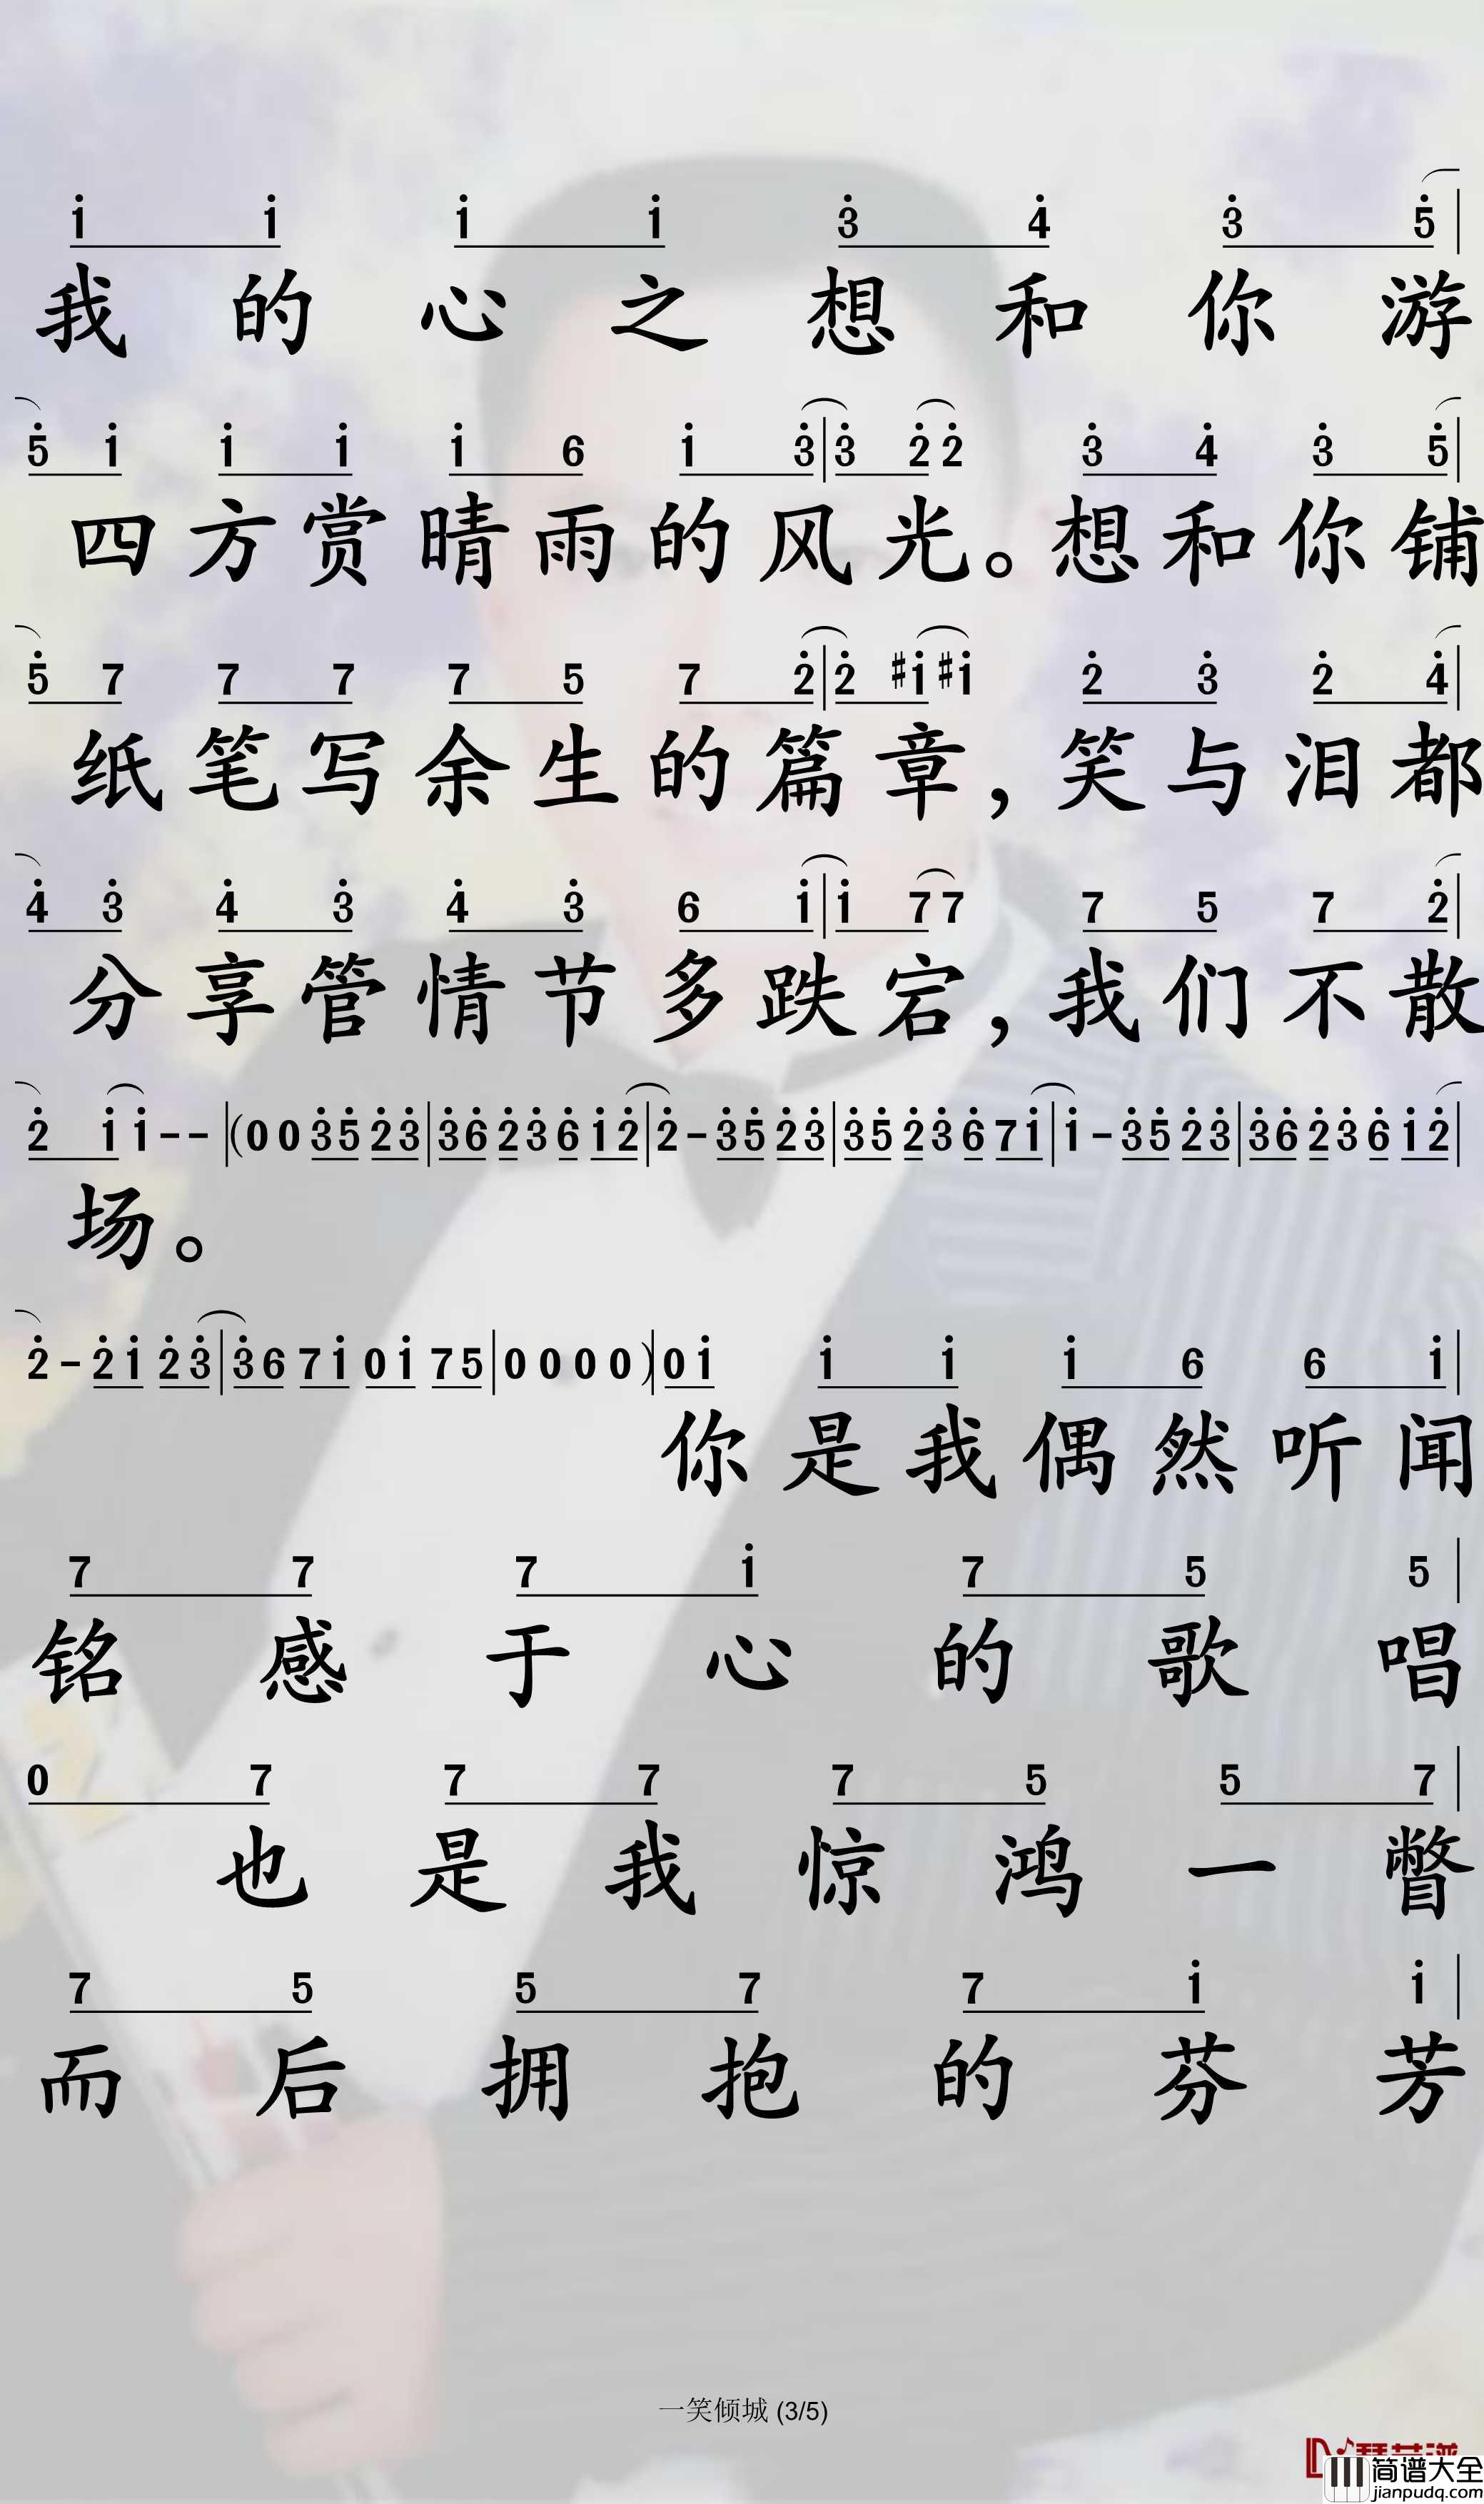 i i i i 3 4 3 5
我的心之想和你游
5 i i i i 6 i 3 | 3 2 2 3 4 3 5
四方赏晴雨的风光。想和你铺
5 7 7 7 7 5 7 2 | 2 #i #i 2 3 2 4
纸笔写余生的篇章，笑与泪都
4 3 4 3 4 3 6 i | i 7 7 7 5 7 2
分享管情节多跌宕，我们不散
2 i i - - | (0 0 3 5 2 3 | 3 6 2 3 6 i 2 | 2 - 3 5 2 3 | 3 5 2 3 6 7 i | i - 3 5 2 3 | 3 6 2 3 6 i 2 |
场。
2 - 2 i 2 3 | 3 6 7 i 0 i 7 5 | 0 0 0 0 ) | 0 i i i i 6 6 i |
你是我偶然听闻
7 7 7 i 7 5 5 |
铭感于心的歌唱
0 7 7 7 7 5 5 7 |
也是我惊鸿一瞥
7 5 5 7 7 i i |
而后拥抱的芬芳
一笑倾城 (3/5)
简谱大全
jianpudq.com